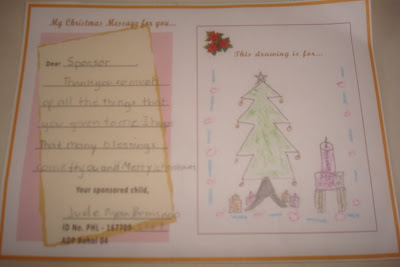 My Christmas Message for you...
Dear Sponsor
Thank you so much
of all the things that
you given to me I hope
That many blessings
come to you and Merry Christmas
Your sponsored child,
Jude Ryan
ID No. PHL - 167709
ADP Bakal 04
This drawing is for...